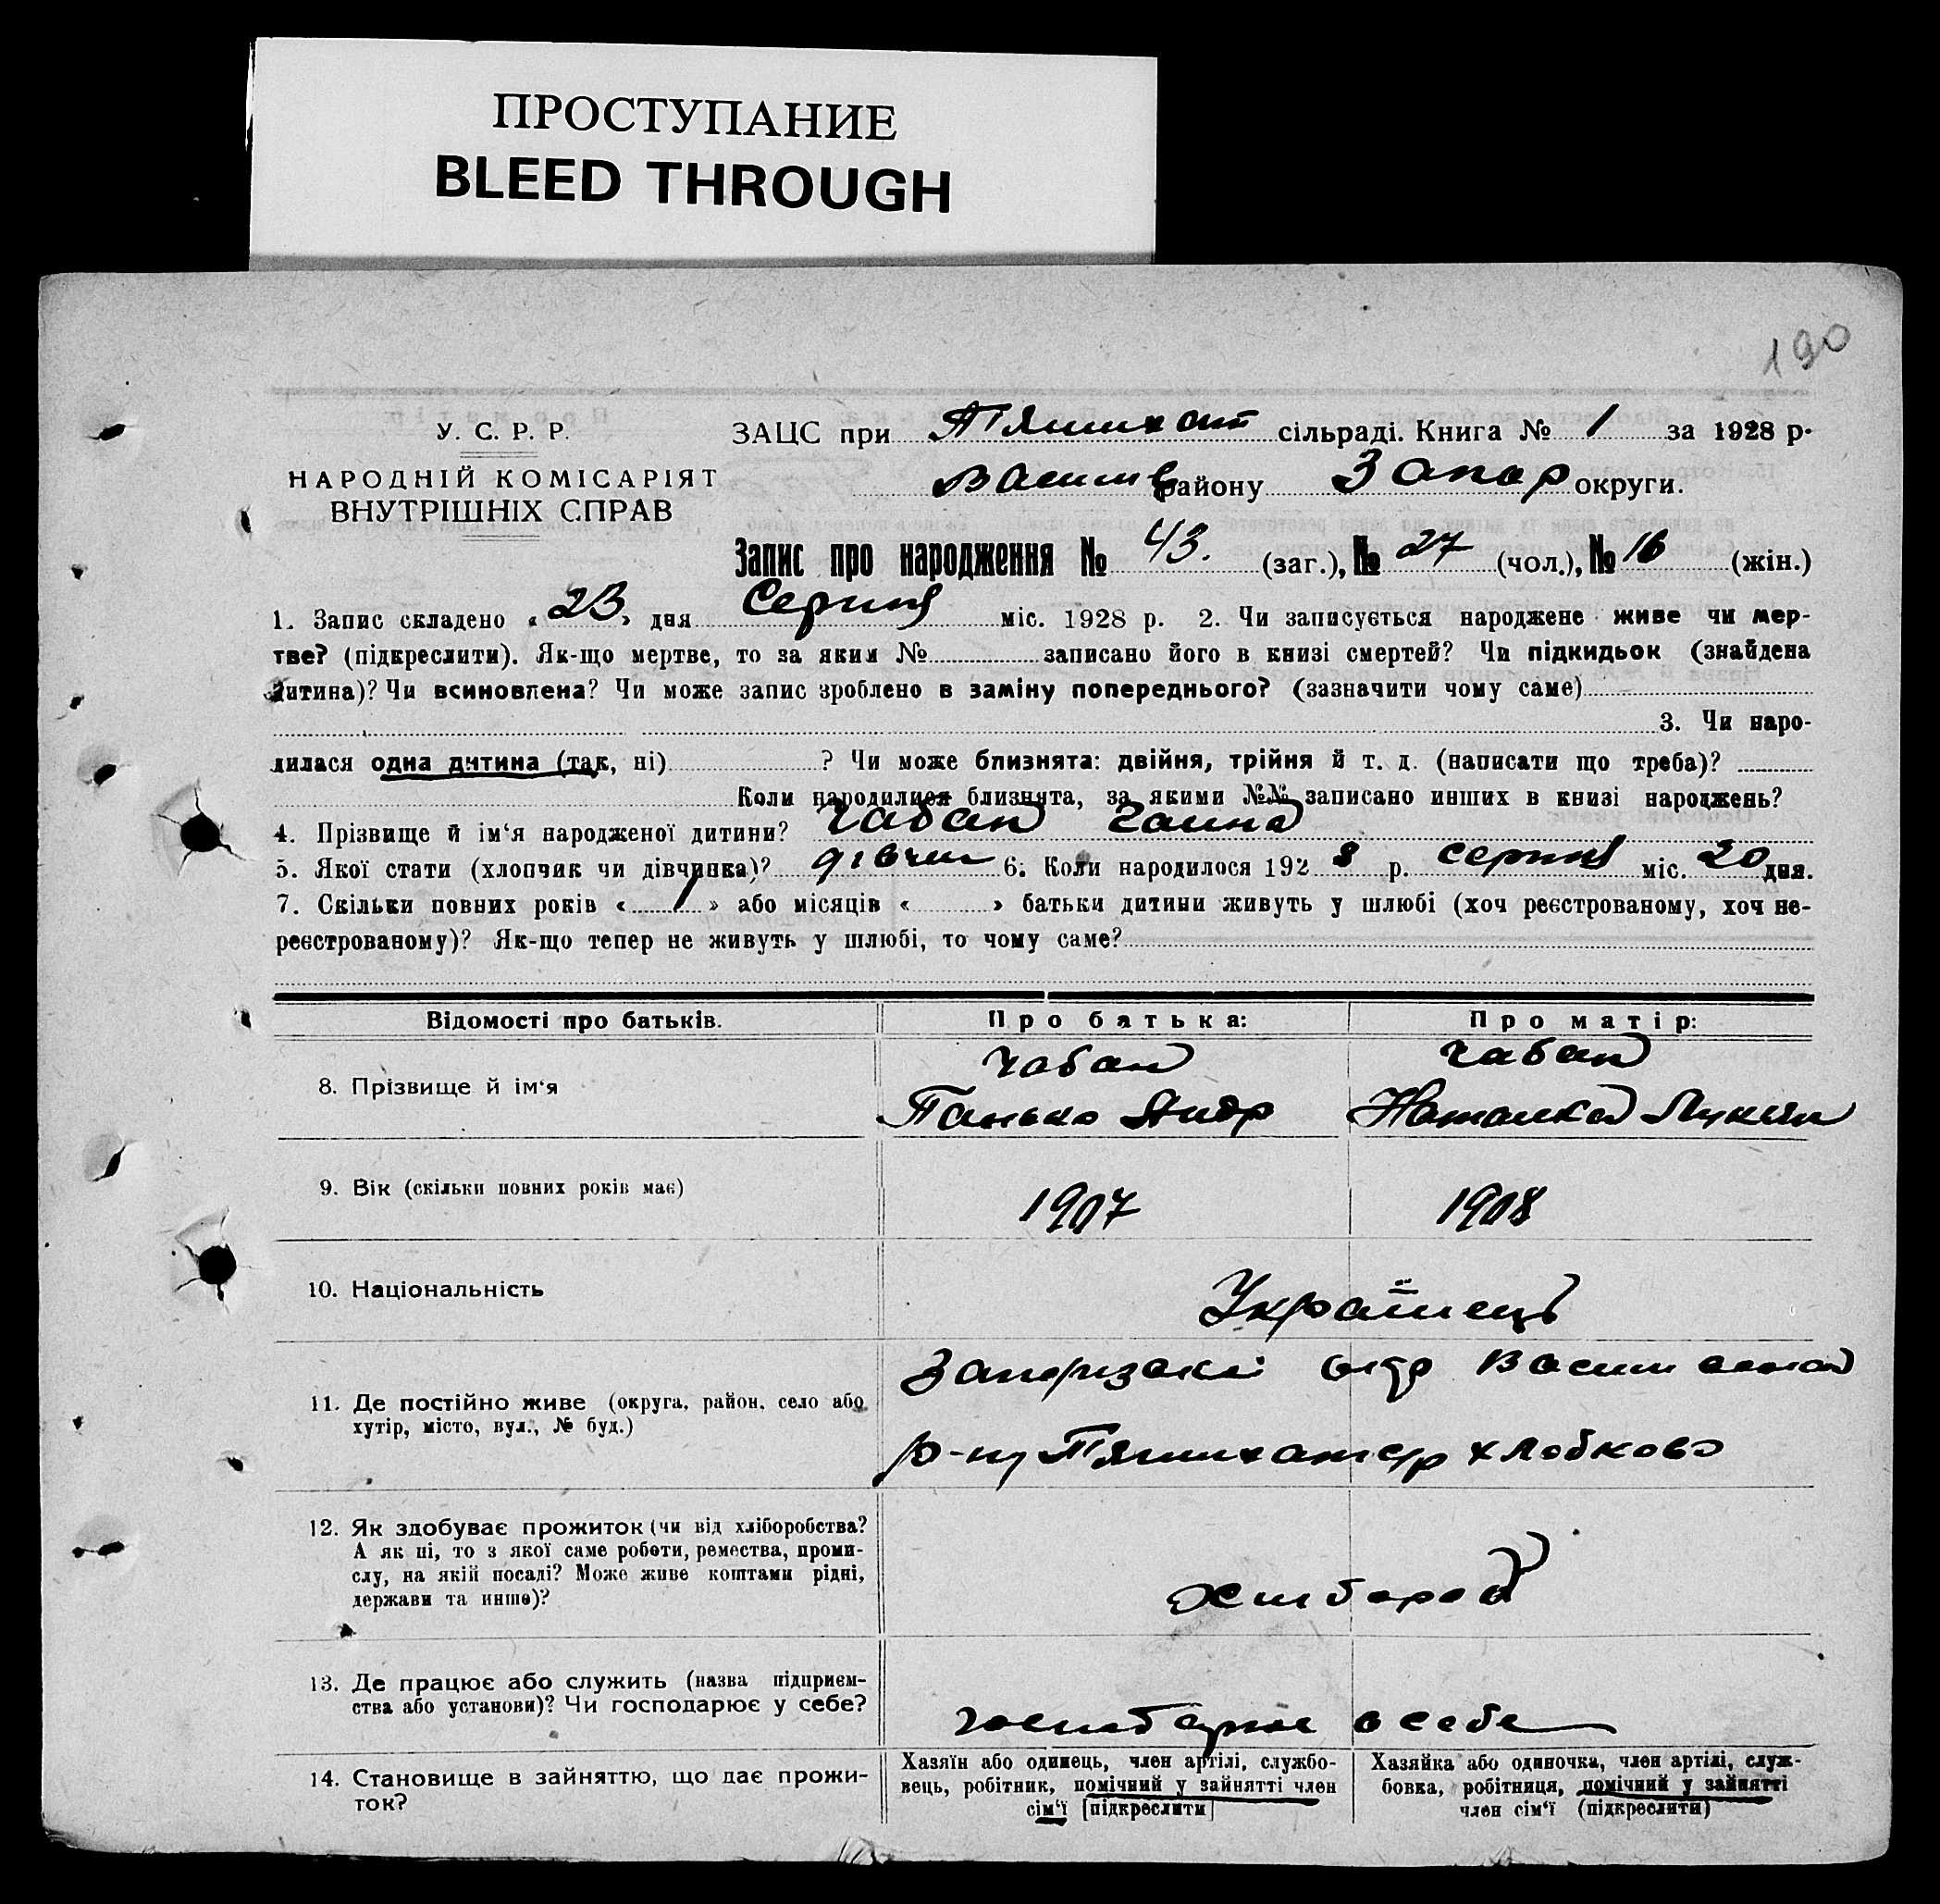 ПРОСТУПАНИЕ
BLEED THROUGH
190
У. С. Р. Р.
НАРОДНІЙ КОМІСАРІЯТ
ВНУТРІШНІХ СПРАВ
ЗАЦС при П'ятихат сільраді. Книга № 1 за 1928 р.
Васил району Запор округи.
Запис про народження № 43. (заг.), № 27 (чол.), № 16 (жін.)
1. Запис складено « 23 » дня Серпня міс. 1928 р. 2. Чи записується народжене живе чи мер-
тве? (підкреслити). Як-що мертве, то за яким № записано його в книзі смертей? Чи підкидьок (знайдена
дитина)? Чи всиновлена? Чи може запис зроблено в заміну попереднього? (зазначити чому саме)
3. Чи наро-
дилася одна дитина (так, ні) ? Чи може близнята: двійня, трійня й т. д. (написати що треба)?
Коли народилися близнята, за якими №№ записано инших в книзі народжень?
4. Прізвище й ім'я народженої дитини? Чабан Ганна
5. Якої стати (хлопчик чи дівчинка)? дівчин 6. Коли народилося 192 8 р. серпня міс. 20 дня.
7. Скільки повних років « 1 » або місяців « » батьки дитини живуть у шлюбі (хоч реєстрованому, хоч не-
реєстрованому)? Як-що тепер не живуть у шлюбі, то чому саме?
Відомості про батьків. Про батька: Про матір:
8. Прізвище й ім'я
Чабан Чабан
Панько Андр Наталка Лукіян
9. Вік (скільки повних років має) 1907 1908
10. Національність Українець
11. Де постійно живе (округа, район, село або
хутір, місто, вул., № буд.)
Запорізької окр Василівськ
р-ну П'ятихат с/р х Лобково
12. Як здобуває прожиток (чи від хліборобства?
А як ні, то з якої саме роботи, ремества, проми-
слу, на якій посаді? Може живе коштами рідні,
держави та инше)?
хлібороб
13. Де працює або служить (назва підприєм-
ства або установи)? Чи господарює у себе?
господарює в себе
14. Становище в зайняттю, що дає прожи-
ток?
Хазяїн або одинець, член артілі, службо-
вець, робітник, помічний у зайнятті член
сім'ї [підкреслити]
Хазяйка або одиночка, член артілі, служ-
бовка, робітниця, помічний у зайнятті
член сім'ї (підкреслити)